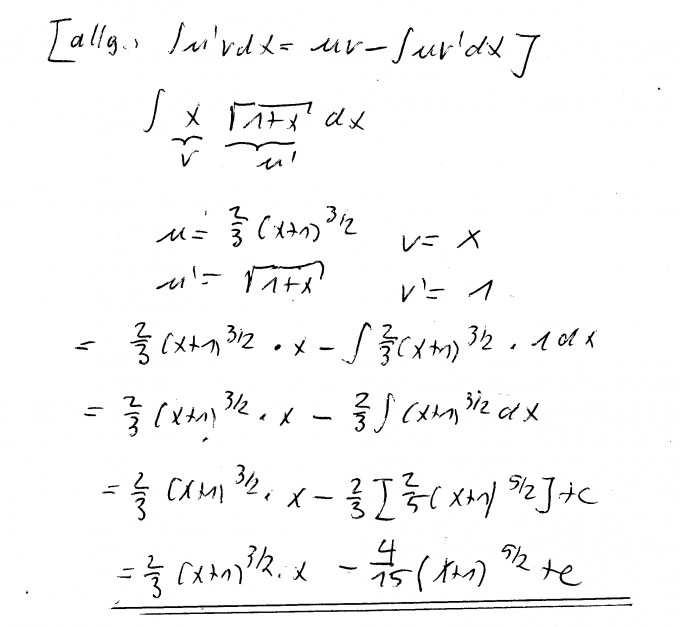 [allg.: ∫u'vdx = uv - ∫uv'dx]
∫ x √(1+x) dx
v u'
u = 2/3 (x+1)^3/2 v = x
u' = √(1+x) v' = 1
= 2/3 (x+1)^3/2 · x - ∫ 2/3 (x+1)^3/2 · 1 dx
= 2/3 (x+1)^3/2 · x - 2/3 ∫ (x+1)^3/2 dx
= 2/3 (x+1)^3/2 · x - 2/3 [2/5 (x+1)^5/2] + c
= 2/3 (x+1)^3/2 · x - 4/15 (x+1)^5/2 + c